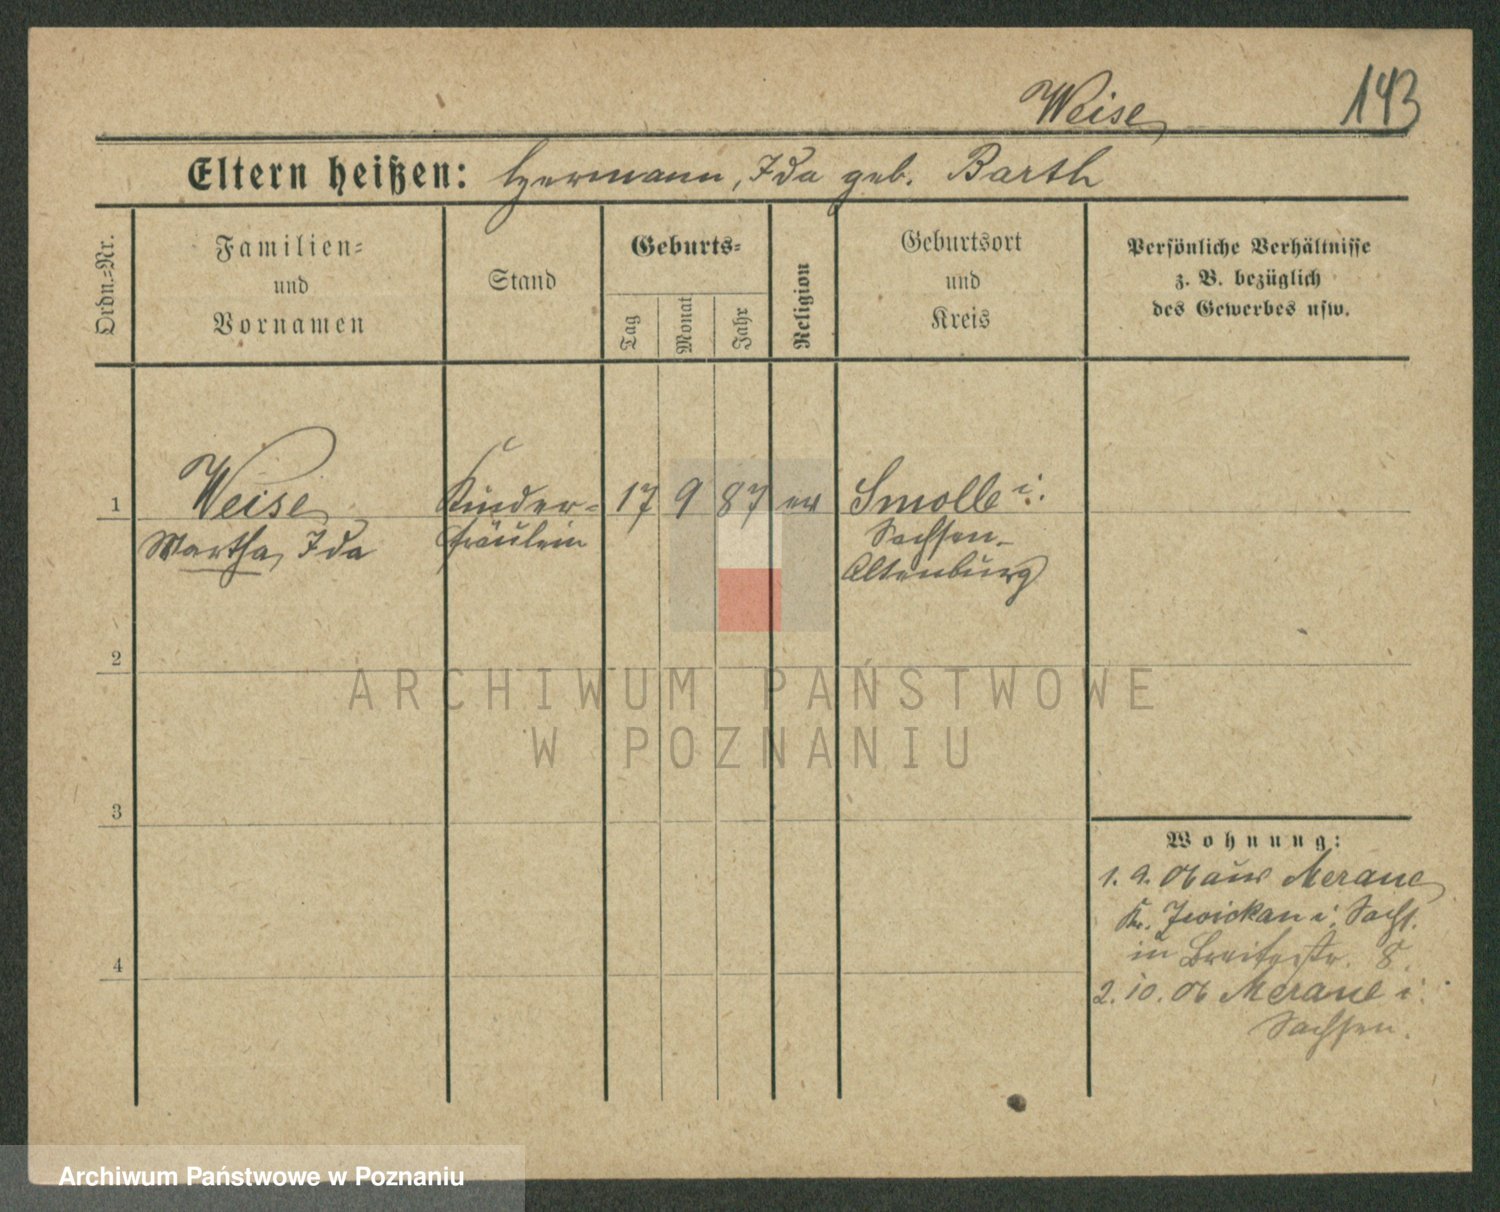 143
Weise
Eltern heißen: Hermann, Ida geb. Barth
Ordn.-Nr.
Familien-
und
Vornamen
Stand
Geburts-
Tag
Monat
Jahr
Religion
Geburtsort
und
Kreis
Persönliche Verhältnisse
z. B. bezüglich
des Gewerbes usw.
1 Weise Kinder- 17 9 87 ev Smolle i.
Martha, Ida fräulein Sachsen-
Altenburg
2
3
4
Wohnung:
1. 9. 06 aus Merane
Kr. Zwickau i. Sachs.
in Breitestr. 8.
2. 10. 06 Merane i.
Sachsen.
ARCHIWUM PAŃSTWOWE
W POZNANIU
Archiwum Państwowe w Poznaniu